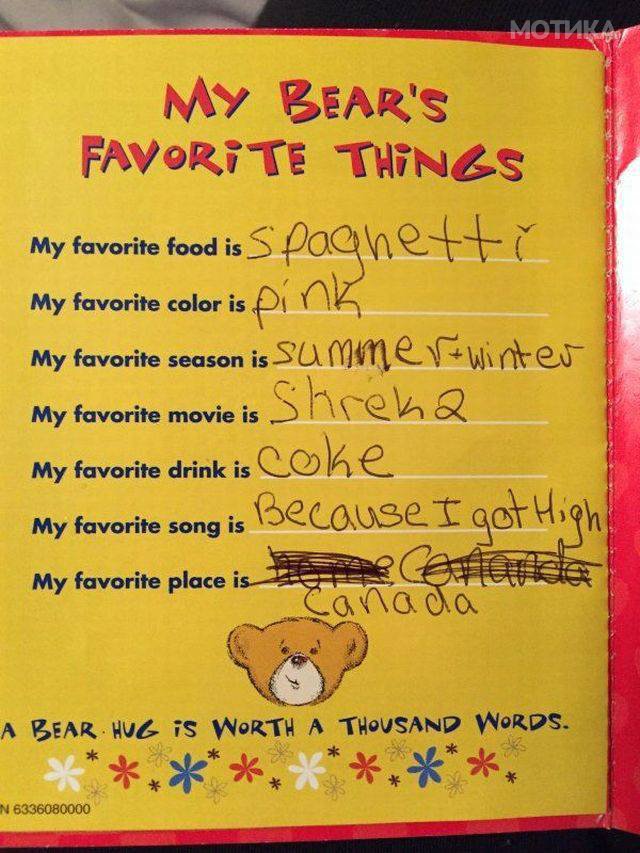 МОТИКА
MY BEAR'S
FAVORiTE THiNGS
My favorite food is spaghetti
My favorite color is pink
My favorite season is summer+winter
My favorite movie is Shrek 2
My favorite drink is coke
My favorite song is Because I got High
My favorite place is home Cananda
canada
A BEAR HUG iS WORTH A THOUSAND WORDS.
N 6336080000